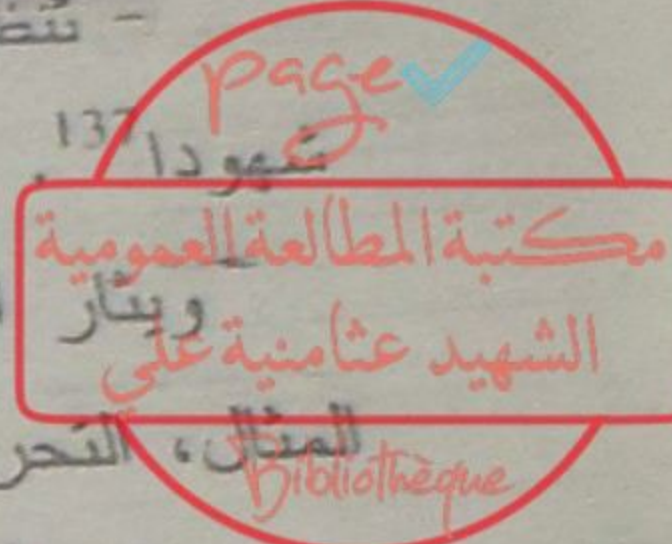 page
شهودا137.
مكتبة المطالعة العمومية
ويثار
الشهيد عثامنية علي
المثال، التحر
Bibliothèque